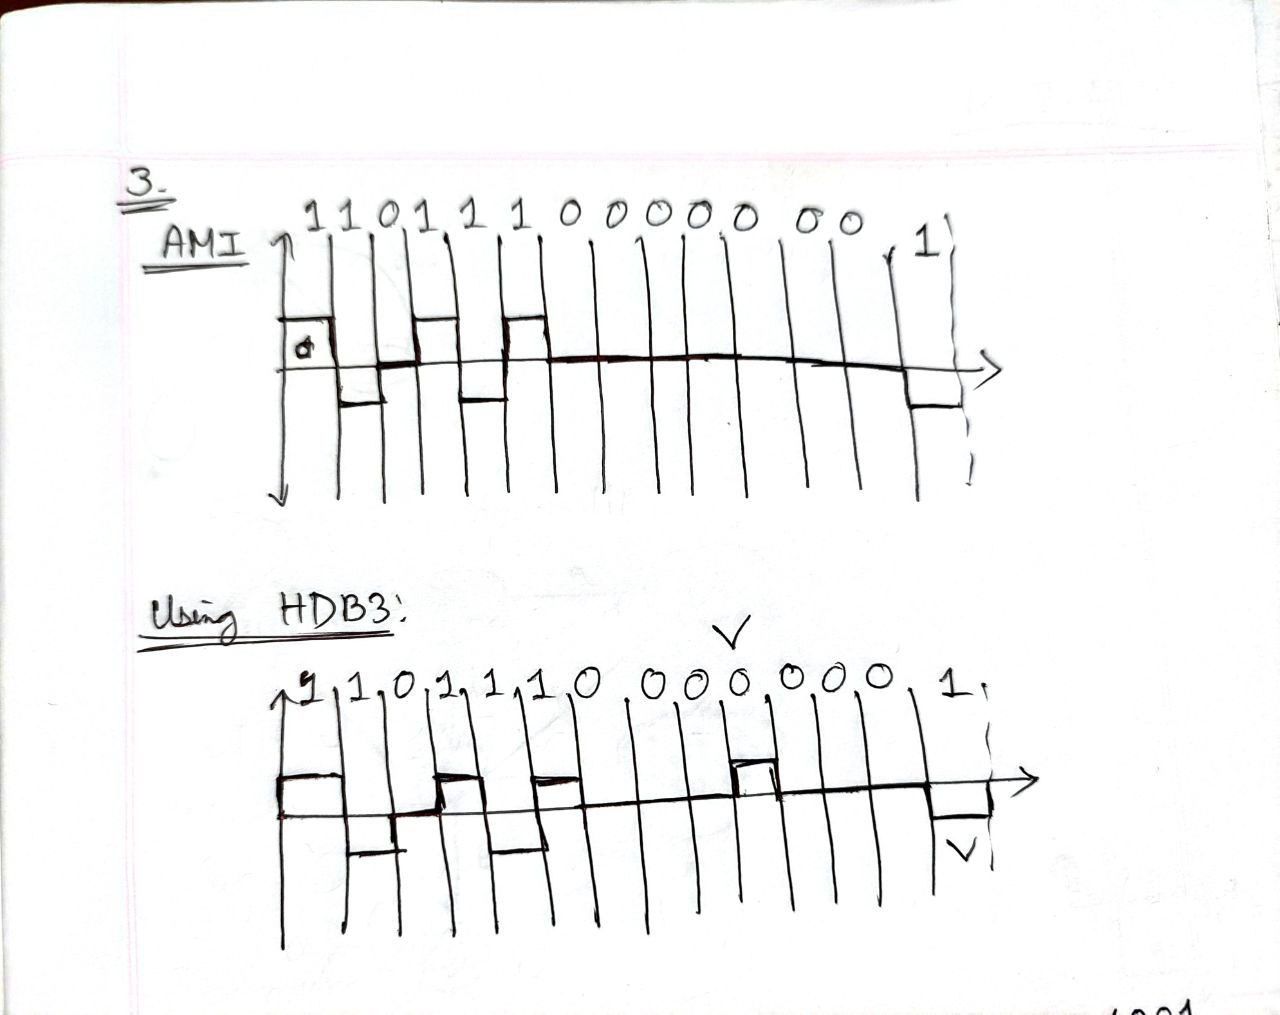 3.
1 1 0 1 1 1 0 0 0 0 0 0 0 1
AMI
Using HDB3:
V
1 1 0 1 1 1 0 0 0 0 0 0 0 1
V